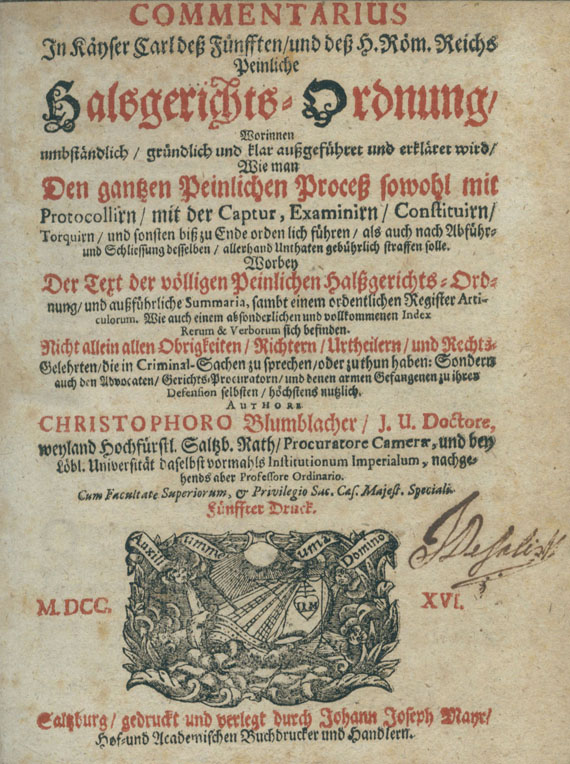 COMMENTARIUS
In Käyser Carl deß Fünfften/und deß H. Röm. Reichs
Peinliche
Halsgerichts-Ordnung/
Worinnen
umbständlich / gründlich und klar außgeführet und erkläret wird/
Wie man
Den gantzen Peinlichen Proceß sowohl mit
Protocollirn/ mit der Captur, Examinirn/ Constituirn/
Torquirn/ und sonsten biß zu Ende ordenlich führen/ als auch nach Abführ-
und Schliessung desselben/ allerhand Unthaten gebührlich straffen solle.
Worbey
Der Text der völligen Peinlichen Halßgerichts-Ord-
nung/und außführliche Summaria, sambt einem ordentlichen Register Arti-
culorum. Wie auch einem absonderlichen und vollkommenen Index
Rerum & Verborum sich befinden.
Nicht allein allen Obrigkeiten/ Richtern/ Urtheilern/ und Rechts-
Gelehrten/die in Criminal-Sachen zu sprechen/oder zu thun haben: Sondern
auch den Advocaten/ Gerichts-Procuratorn/und denen armen Gefangenen zu ihrer
Defension selbsten/ höchstens nutzlich.
AUTHORE
CHRISTOPHORO Blumblacher/ J. U. Doctore,
weyland Hochfürstl. Saltzb. Rath/ Procuratore Cameræ, und bey
Löbl. Universität daselbst vormahls Institutionum Imperialum, nachge-
hends aber Professore Ordinario.
Cum Facultate Superiorum, & Privilegio Sac. Cæs. Majest. Speciali.
Fünffter Druck.
Auxili umme una Domino
M. DCC. XVI.
Saltzburg/ gedruckt und verlegt durch Johann Joseph Mayr/
Hof-und Academischen Buchdrucker und Handlern.